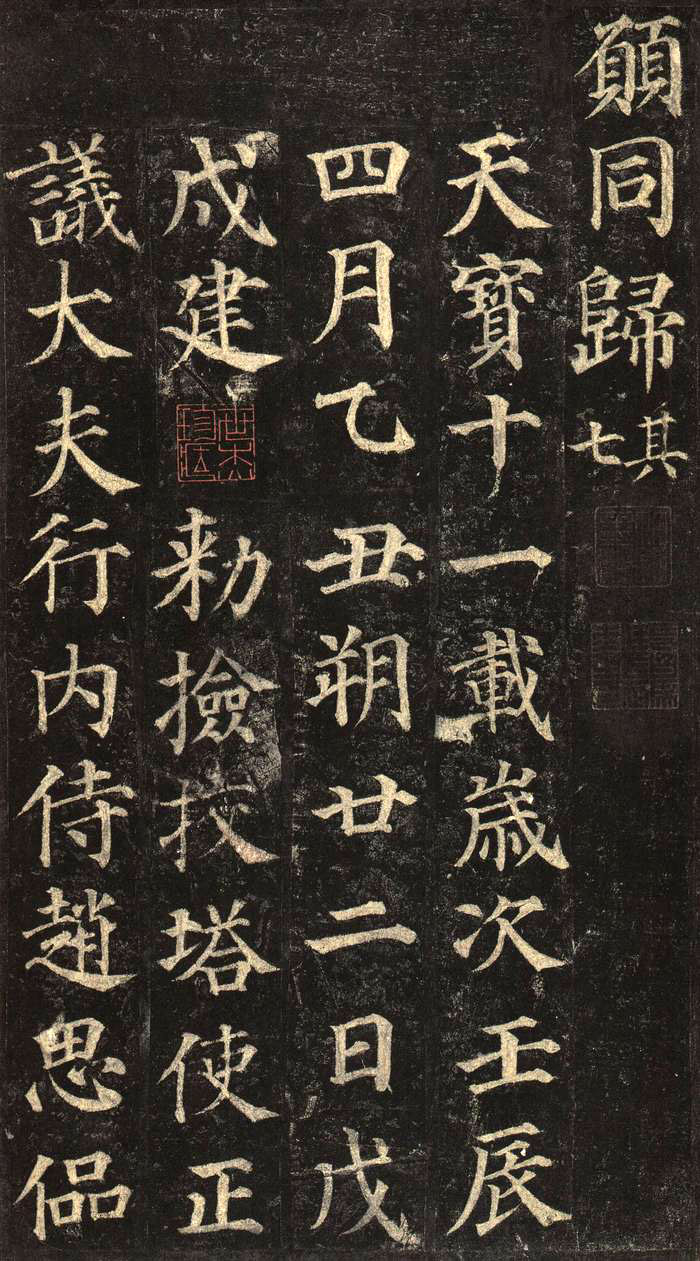 願同歸其七
天寶十一載歲次壬辰
四月乙丑朔廿二日戊
戌建勅撿挍塔使正
議大夫行内侍趙思偘